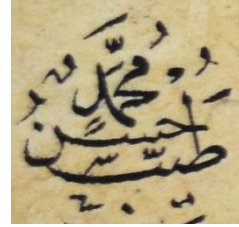 محمد
احسن
طيب